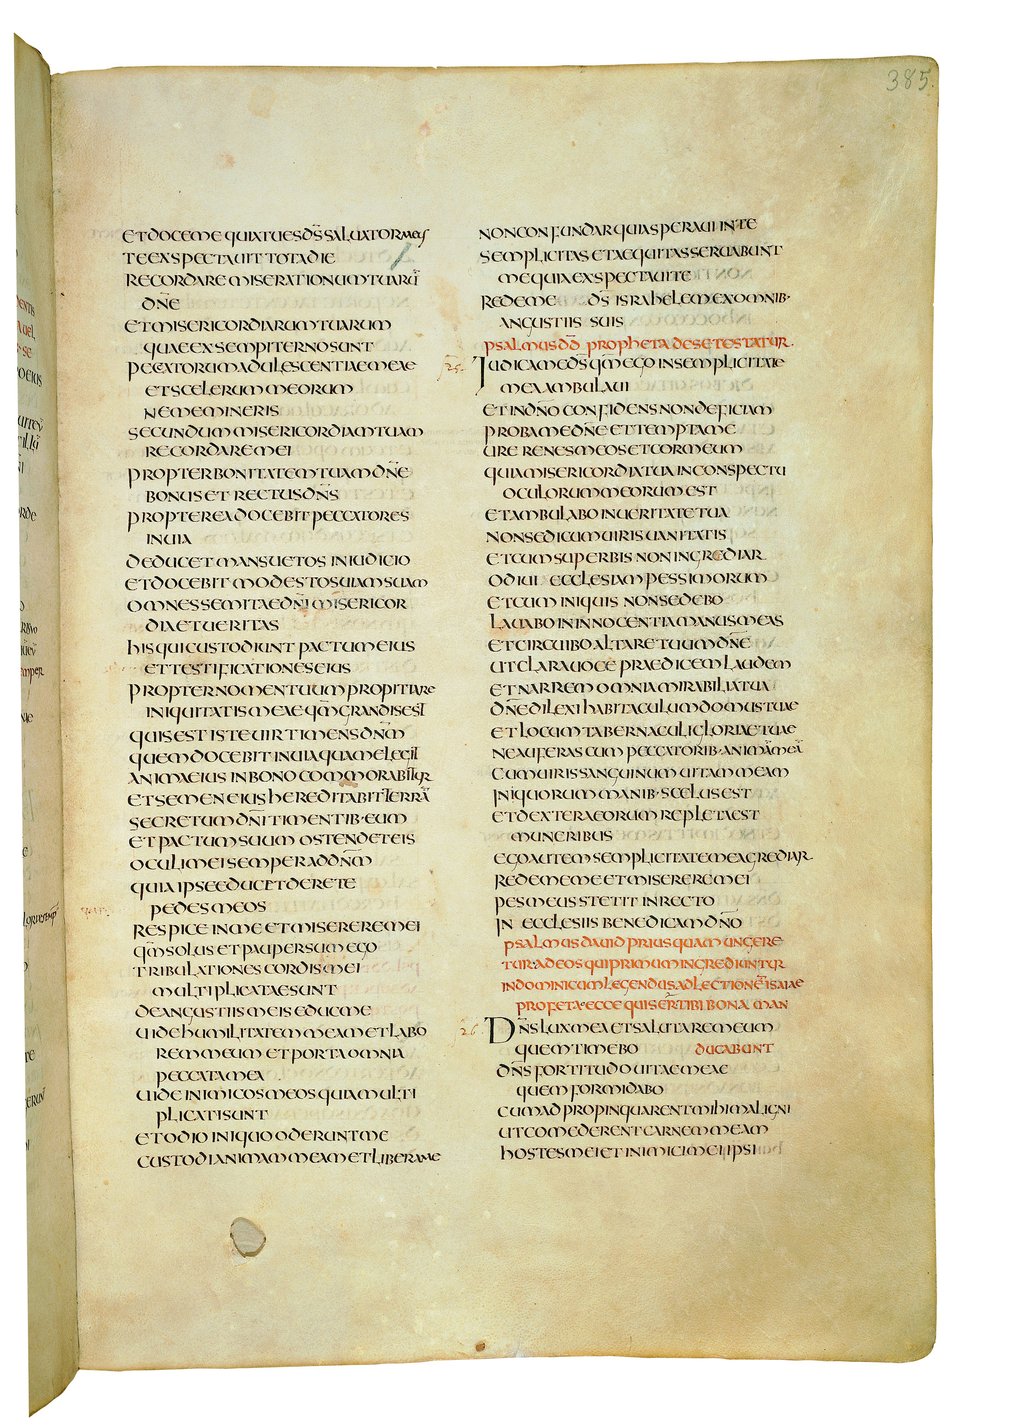 385.
ET DOCE ME QUIA TU ES D̅S̅ SALUATOR MEUS
TE EXSPECTAUIT TOTA DIE
RECORDARE MISERATIONUM TUARŪ
DN̅E
ET MISERICORDIARUM TUARUM
QUAE EX SEMPITERNO SUNT
PECCATORUM ADULESCENTIAE MEAE
ET SCELERUM MEORUM
NE MEMINERIS
SECUNDUM MISERICORDIAM TUAM
RECORDARE MEI
PROPTER BONITATEM TUAM DN̅E
BONUS ET RECTUS DN̅S
PROPTEREA DOCEBIT PECCATORES
IN UIA
DEDUCET MANSUETOS IN IUDICIO
ET DOCEBIT MODESTOS UIAM SUAM
OMNES SEMITAE DN̅I MISERICOR
DIA ET UERITAS
HIS QUI CUSTODIUNT PACTUM EIUS
ET TESTIFICATIONES EIUS
PROPTER NOMEN TUUM PROPITIARE
INIQUITATIS MEAE QM̅ GRANDIS EST
QUIS EST ISTE UIR TIMENS DN̅M
QUEM DOCEBIT IN UIA QUAM ELEGIT
ANIMA EIUS IN BONO COMMORABITUR
ET SEMEN EIUS HEREDITABIT TERRĀ
SECRETUM DN̅I TIMENTIB· EUM
ET PACTUM SUUM OSTENDET EIS
OCULI MEI SEMPER AD DN̅M
QUIA IPSE EDUCET DE RETE
PEDES MEOS
RESPICE IN ME ET MISERERE MEI
QM̅ SOLUS ET PAUPER SUM EGO
TRIBULATIONES CORDIS MEI
MULTIPLICATAE SUNT
DE ANGUSTIIS MEIS EDUC ME
UIDE HUMILITATEM MEAM ET LABO
REM MEUM ET PORTA OMNIA
PECCATA MEA
UIDE INIMICOS MEOS QUIA MULTI
PLICATI SUNT
ET ODIO INIQUO ODERUNT ME
CUSTODI ANIMAM MEAM ET LIBERA ME
NON CONFUNDAR QUIA SPERAUI IN TE
SEMPLICITAS ET AEQUITAS SERUABUNT
ME QUIA EXSPECTAUI TE
REDEME D̅S̅ ISRAHELEM EX OMNIB·
ANGUSTIIS SUIS
PSALMUS DD̅ PROPHETA DE SE TESTATUR.
25. IUDICA ME D̅S̅ QM̅ EGO IN SEMPLICITATE
MEA AMBULAUI
ET IN DN̅O CONFIDENS NON DEFICIAM
PROBA ME DN̅E ET TEMPTA ME
URE RENES MEOS ET COR MEUM
QUIA MISERICORDIA TUA IN CONSPECTU
OCULORUM MEORUM EST
ET AMBULABO IN UERITATE TUA
NON SEDI CUM UIRIS UANITATIS
ET CUM SUPERBIS NON INGREDIAR
ODIUI ECCLESIAM PESSIMORUM
ET CUM INIQUIS NON SEDEBO
LAUABO IN INNOCENTIA MANUS MEAS
ET CIRCUIBO ALTARE TUUM DN̅E
UT CLARA UOCE PRAEDICEM LAUDEM
ET NARREM OMNIA MIRABILIA TUA
DN̅E DILEXI HABITACULUM DOMUS TUAE
ET LOCUM TABERNACULI GLORIAE TUAE
NE AUFERAS CUM PECCATORIB· ANIMĀ MEĀ
CUM UIRIS SANGUINUM UITAM MEAM
INIQUORUM MANIB· SCELUS EST
ET DEXTERA EORUM REPLETA EST
MUNERIBUS
EGO AUTEM SEMPLICITATE MEA GREDIAR
REDEME ME ET MISERERE MEI
PES MEUS STETIT IN RECTO
IN ECCLESIIS BENEDICAM DN̅O
PSALMUS DAUID PRIUSQUAM UNGERE
TUR· AD EOS QUI PRIMUM INGREDIUNTUR
IN DOMINICUM LEGENDUS AD LECTIONĒ ISAIAE
PROFETA· ECCE QUI SERT̅ TIBI BONA MAN
26. DN̅S LUX MEA ET SALUTARE MEUM
QUEM TIMEBO DUCABUNT
DN̅S FORTITUDO UITAE MEAE
QUEM FORMIDABO
CUM ADPROPINQUARENT MIHI MALIGNI
UT COMEDERENT CARNEM MEAM
HOSTES MEI ET INIMICI MEI IPSI